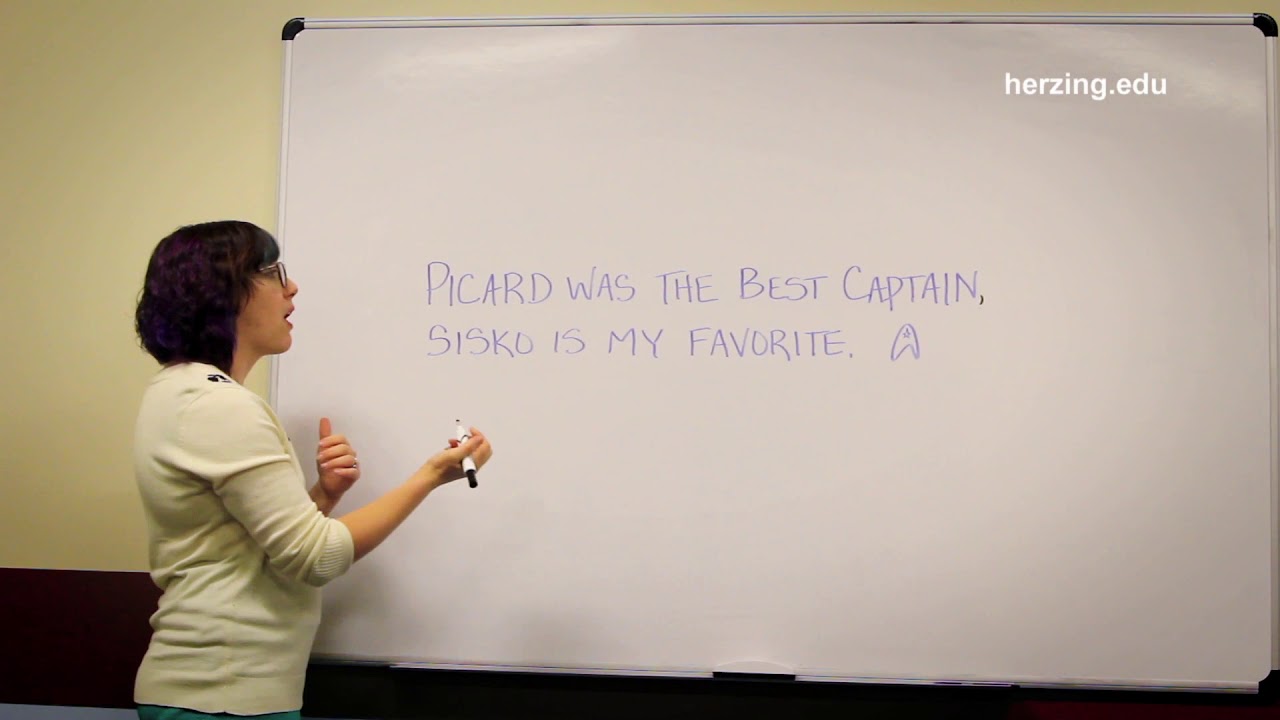 herzing.edu
PICARD WAS THE BEST CAPTAIN,
SISKO IS MY FAVORITE.